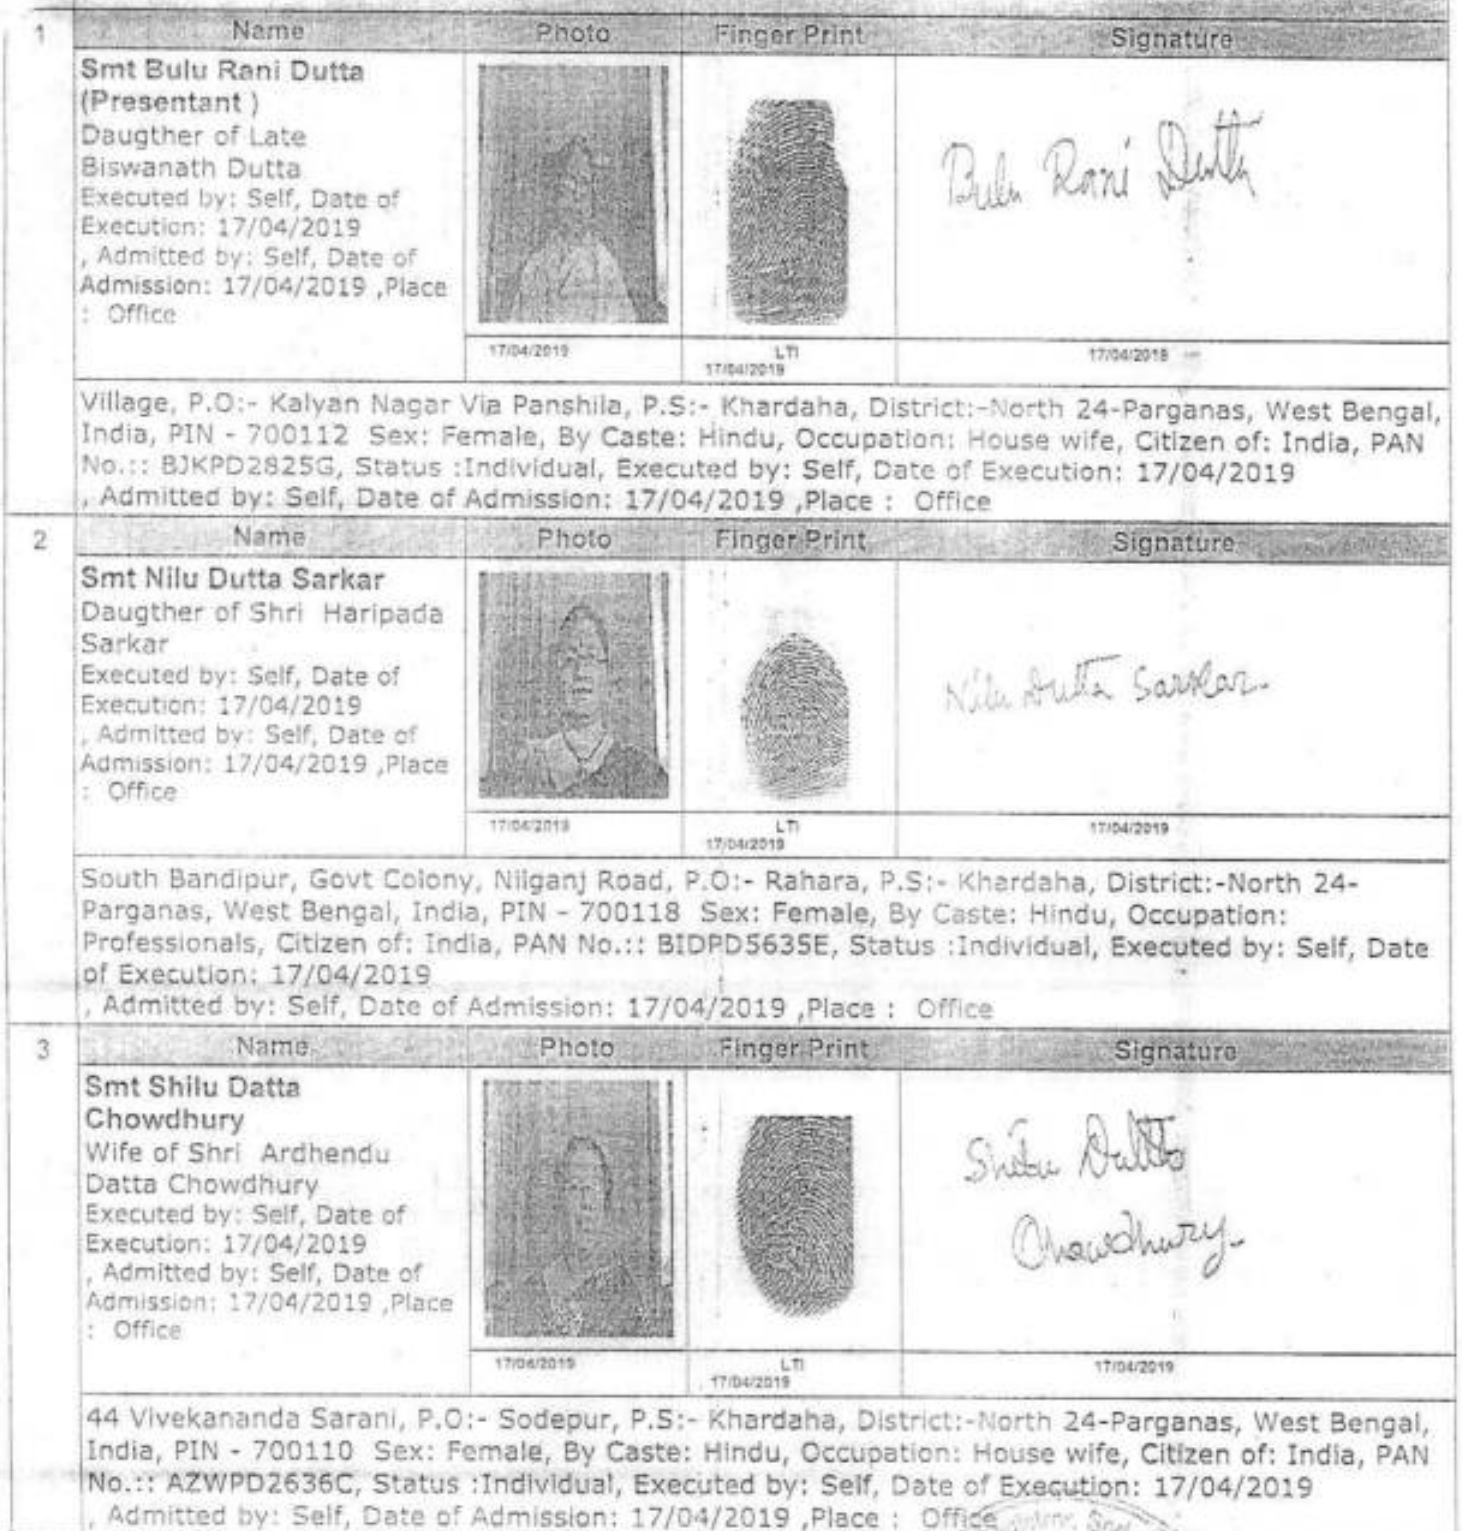 1
Name Photo Finger Print Signature
Smt Bulu Rani Dutta
(Presentant )
Daugther of Late
Biswanath Dutta
Executed by: Self, Date of
Execution: 17/04/2019
, Admitted by: Self, Date of
Admission: 17/04/2019 ,Place
: Office
Bulu Rani Dutta
17/04/2019
LTI
17/04/2019
17/04/2019
Village, P.O:- Kalyan Nagar Via Panshila, P.S:- Khardaha, District:-North 24-Parganas, West Bengal,
India, PIN - 700112 Sex: Female, By Caste: Hindu, Occupation: House wife, Citizen of: India, PAN
No.:: BJKPD2825G, Status :Individual, Executed by: Self, Date of Execution: 17/04/2019
, Admitted by: Self, Date of Admission: 17/04/2019 ,Place : Office
2
Name Photo Finger Print Signature
Smt Nilu Dutta Sarkar
Daugther of Shri Haripada
Sarkar
Executed by: Self, Date of
Execution: 17/04/2019
, Admitted by: Self, Date of
Admission: 17/04/2019 ,Place
: Office
Nilu Dutta Sarkar.
17/04/2019
LTI
17/04/2019
17/04/2019
South Bandipur, Govt Colony, Nilganj Road, P.O:- Rahara, P.S:- Khardaha, District:-North 24-
Parganas, West Bengal, India, PIN - 700118 Sex: Female, By Caste: Hindu, Occupation:
Professionals, Citizen of: India, PAN No.:: BIDPD5635E, Status :Individual, Executed by: Self, Date
of Execution: 17/04/2019
, Admitted by: Self, Date of Admission: 17/04/2019 ,Place : Office
3
Name Photo Finger Print Signature
Smt Shilu Datta
Chowdhury
Wife of Shri Ardhendu
Datta Chowdhury
Executed by: Self, Date of
Execution: 17/04/2019
, Admitted by: Self, Date of
Admission: 17/04/2019 ,Place
: Office
Shilu Datta
Chowdhury
17/04/2019
LTI
17/04/2019
17/04/2019
44 Vivekananda Sarani, P.O:- Sodepur, P.S:- Khardaha, District:-North 24-Parganas, West Bengal,
India, PIN - 700110 Sex: Female, By Caste: Hindu, Occupation: House wife, Citizen of: India, PAN
No.:: AZWPD2636C, Status :Individual, Executed by: Self, Date of Execution: 17/04/2019
, Admitted by: Self, Date of Admission: 17/04/2019 ,Place : Office